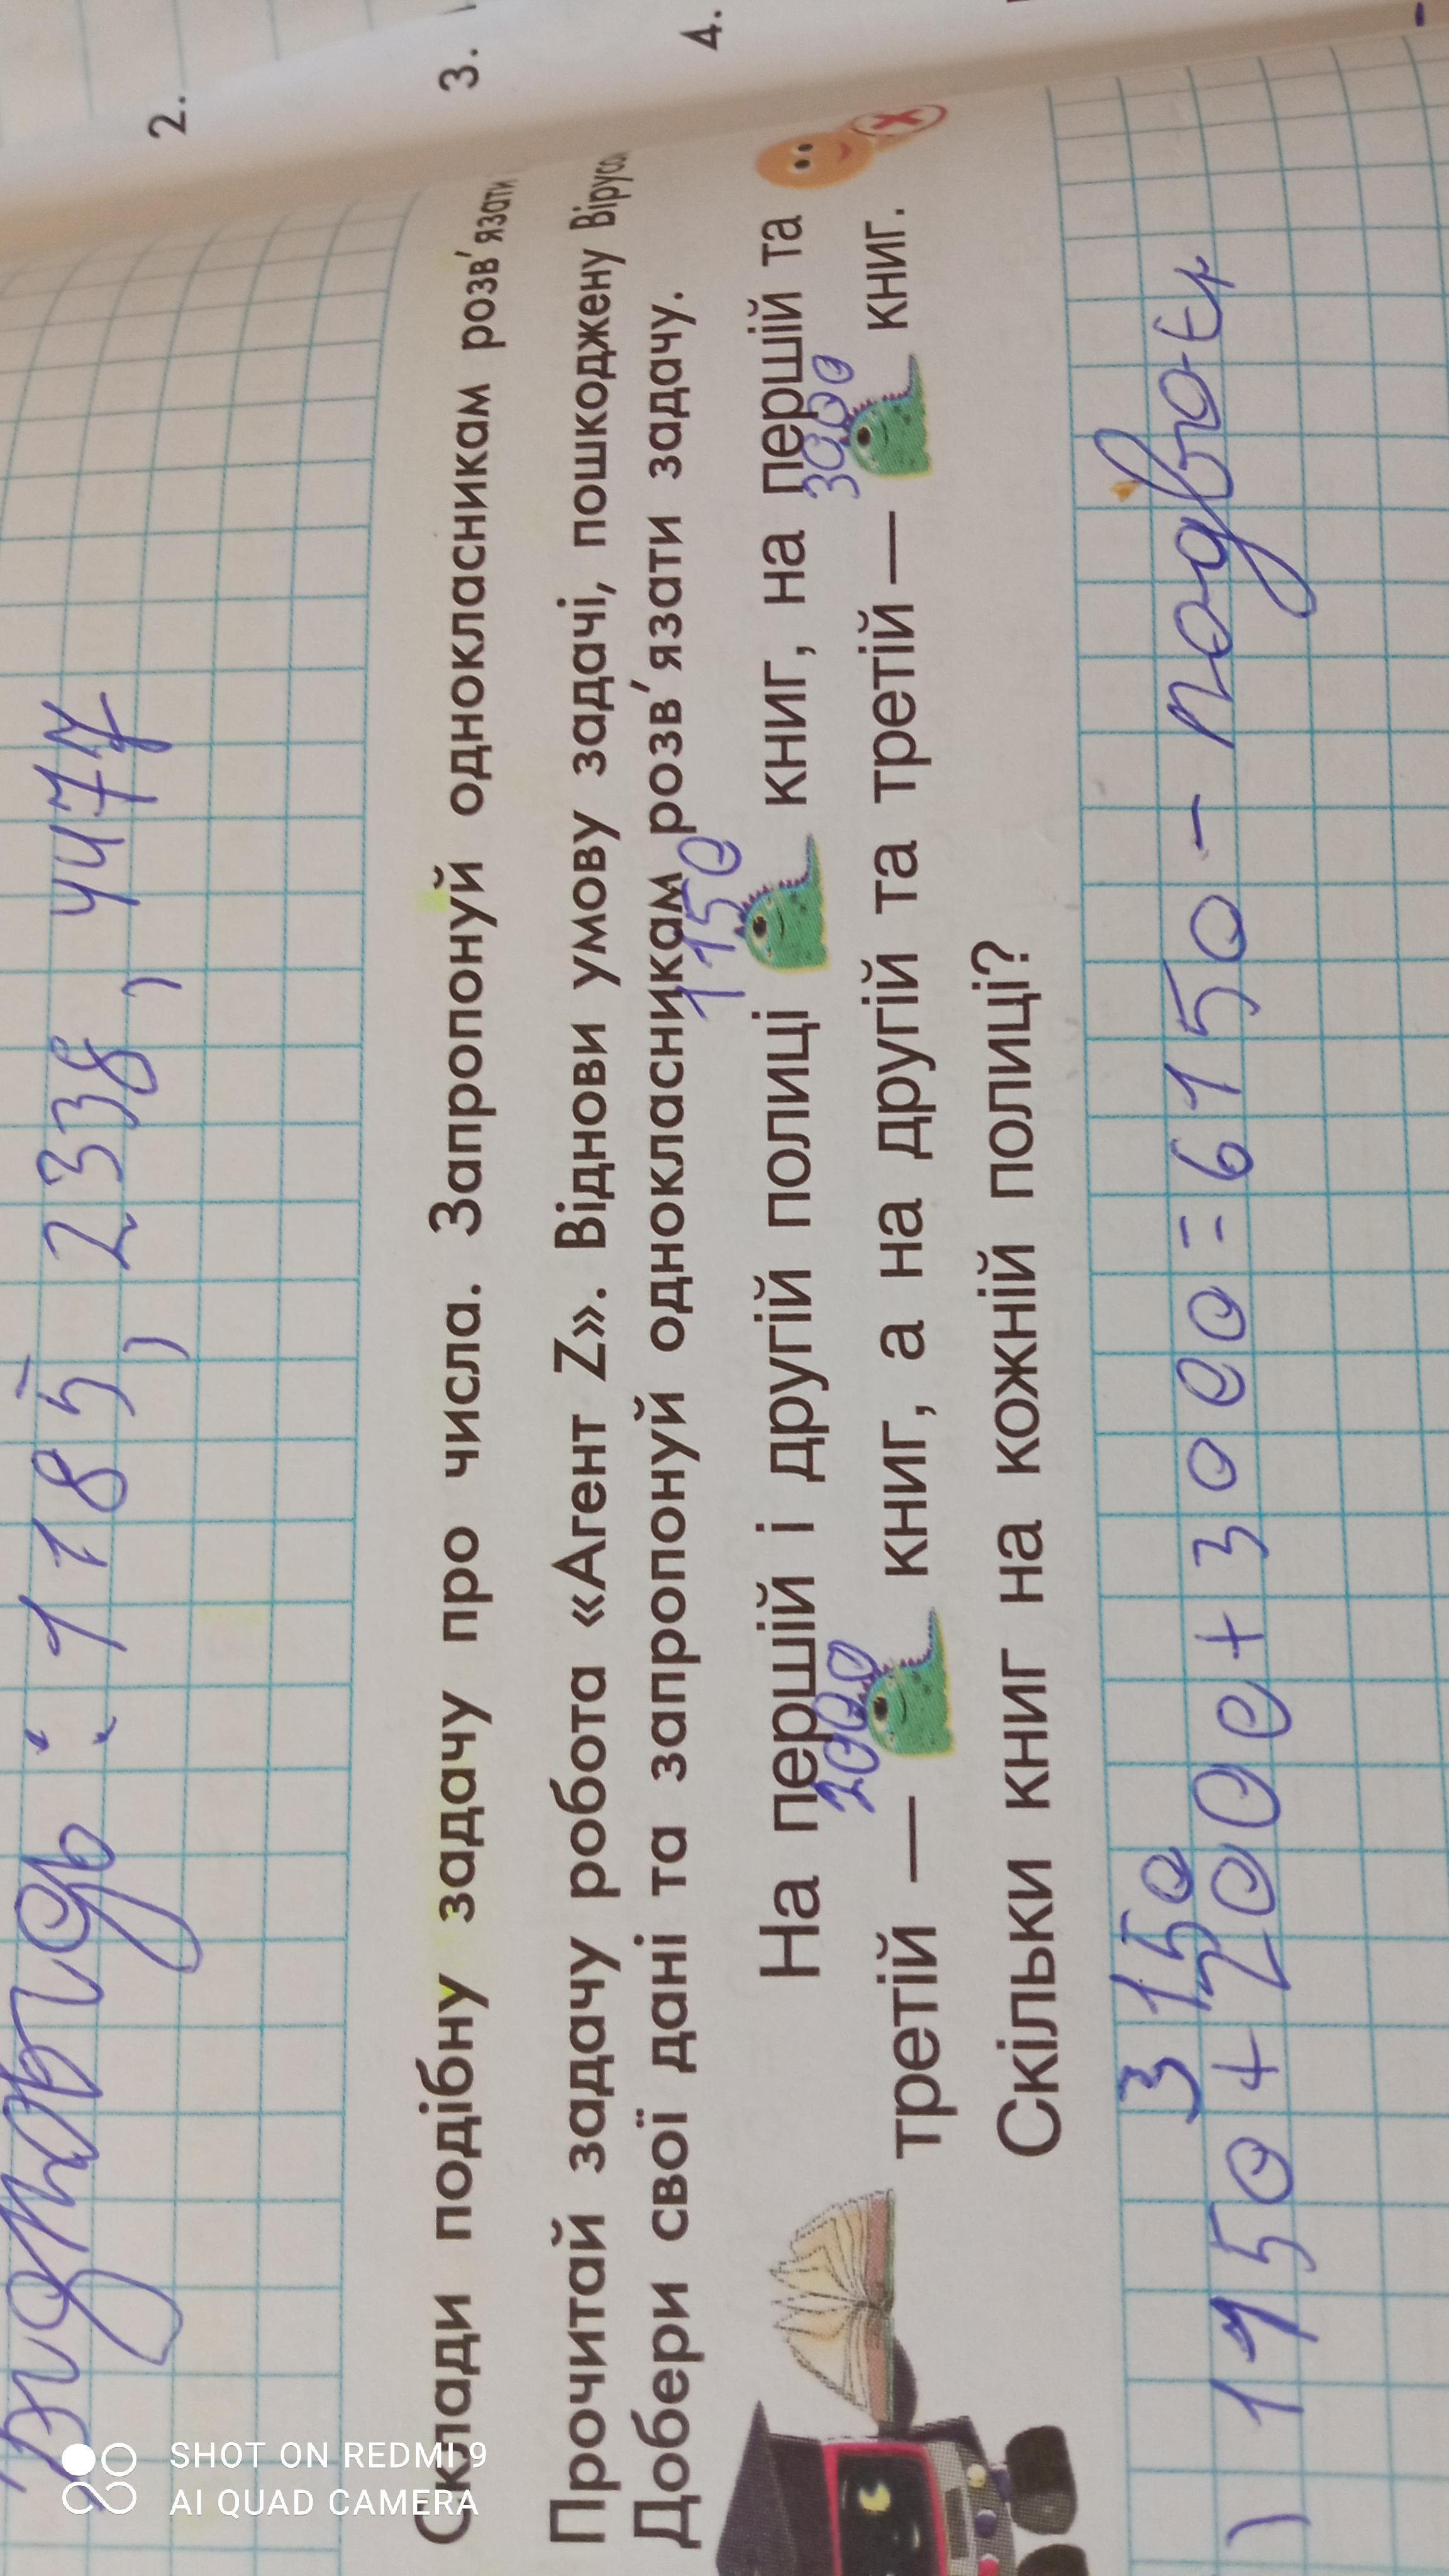 2.
3.
4.
Відповідь: 1185, 2338, 4477
Склади подібну задачу про числа. Запропонуй однокласникам розв'язати
Прочитай задачу робота «Агент Z». Віднови умову задачі, пошкоджену
Добери свої дані та запропонуй однокласникам розв'язати задачу.
1150
На першій і другій полиці книг, на першій та
2000 3000
третій — книг, а на другій та третій — книг.
Скільки книг на кожній полиці?
3150
1) 1150+2000+3000=6150-
SHOT ON REDMI 9
AI QUAD CAMERA